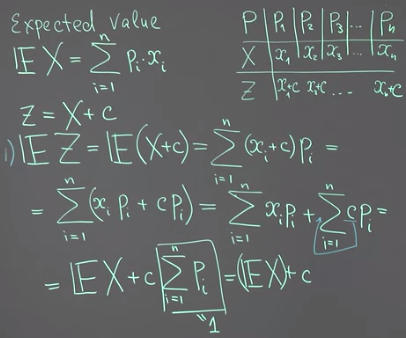 Expected value
𝔼X = ∑_{i=1}^{n} p_i·x_i
P | P₁ | P₂ | P₃ | ... | Pₙ
X | x₁ | x₂ | x₃ ... | xₙ
Z | x₁+c x₂+c ... xₙ+c
Z = X+c
1) 𝔼Z = 𝔼(X+c) = ∑_{i=1}^{n} (x_i+c)P_i =
= ∑_{i=1}^{n} (x_i P_i + cP_i) = ∑_{i=1}^{n} x_i P_i + ∑_{i=1}^{n} cP_i =
= 𝔼X + c ∑_{i=1}^{n} P_i = (𝔼X) + c
"1